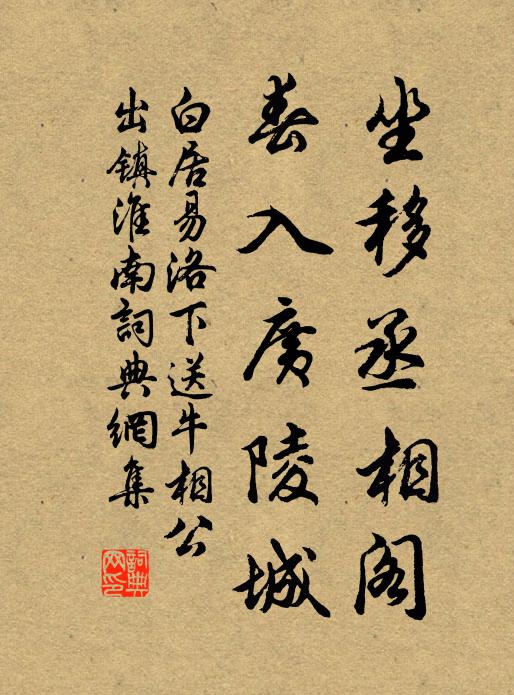 坐移丞相阁
春入廣陵城
白居易洛下送牛相公
出镇淮南詞典網集
詞典網印